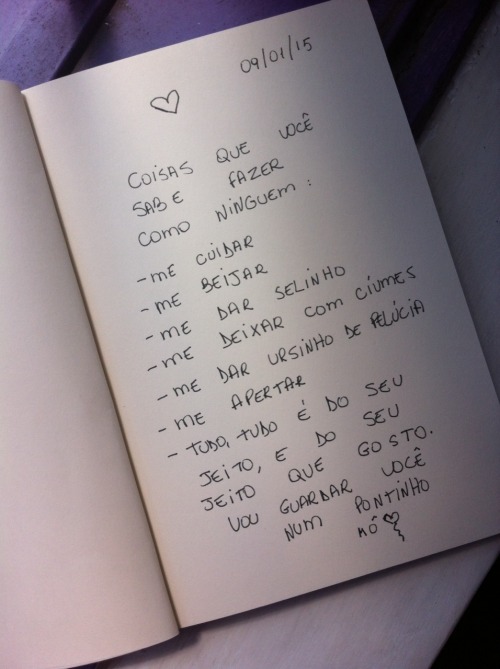 09/01/15
COISAS QUE VOCÊ
SABE FAZER
COMO NINGUEM:
-ME CUIDAR
-ME BEIJAR
-ME DAR SELINHO
-ME DEIXAR COM CIÚMES
-ME DAR URSINHO DE PELÚCIA
-ME APERTAR
-TUDO, TUDO É DO SEU
JEITO, E DO SEU
JEITO QUE GOSTO.
VOU GUARDAR VOCÊ
NUM PONTINHO